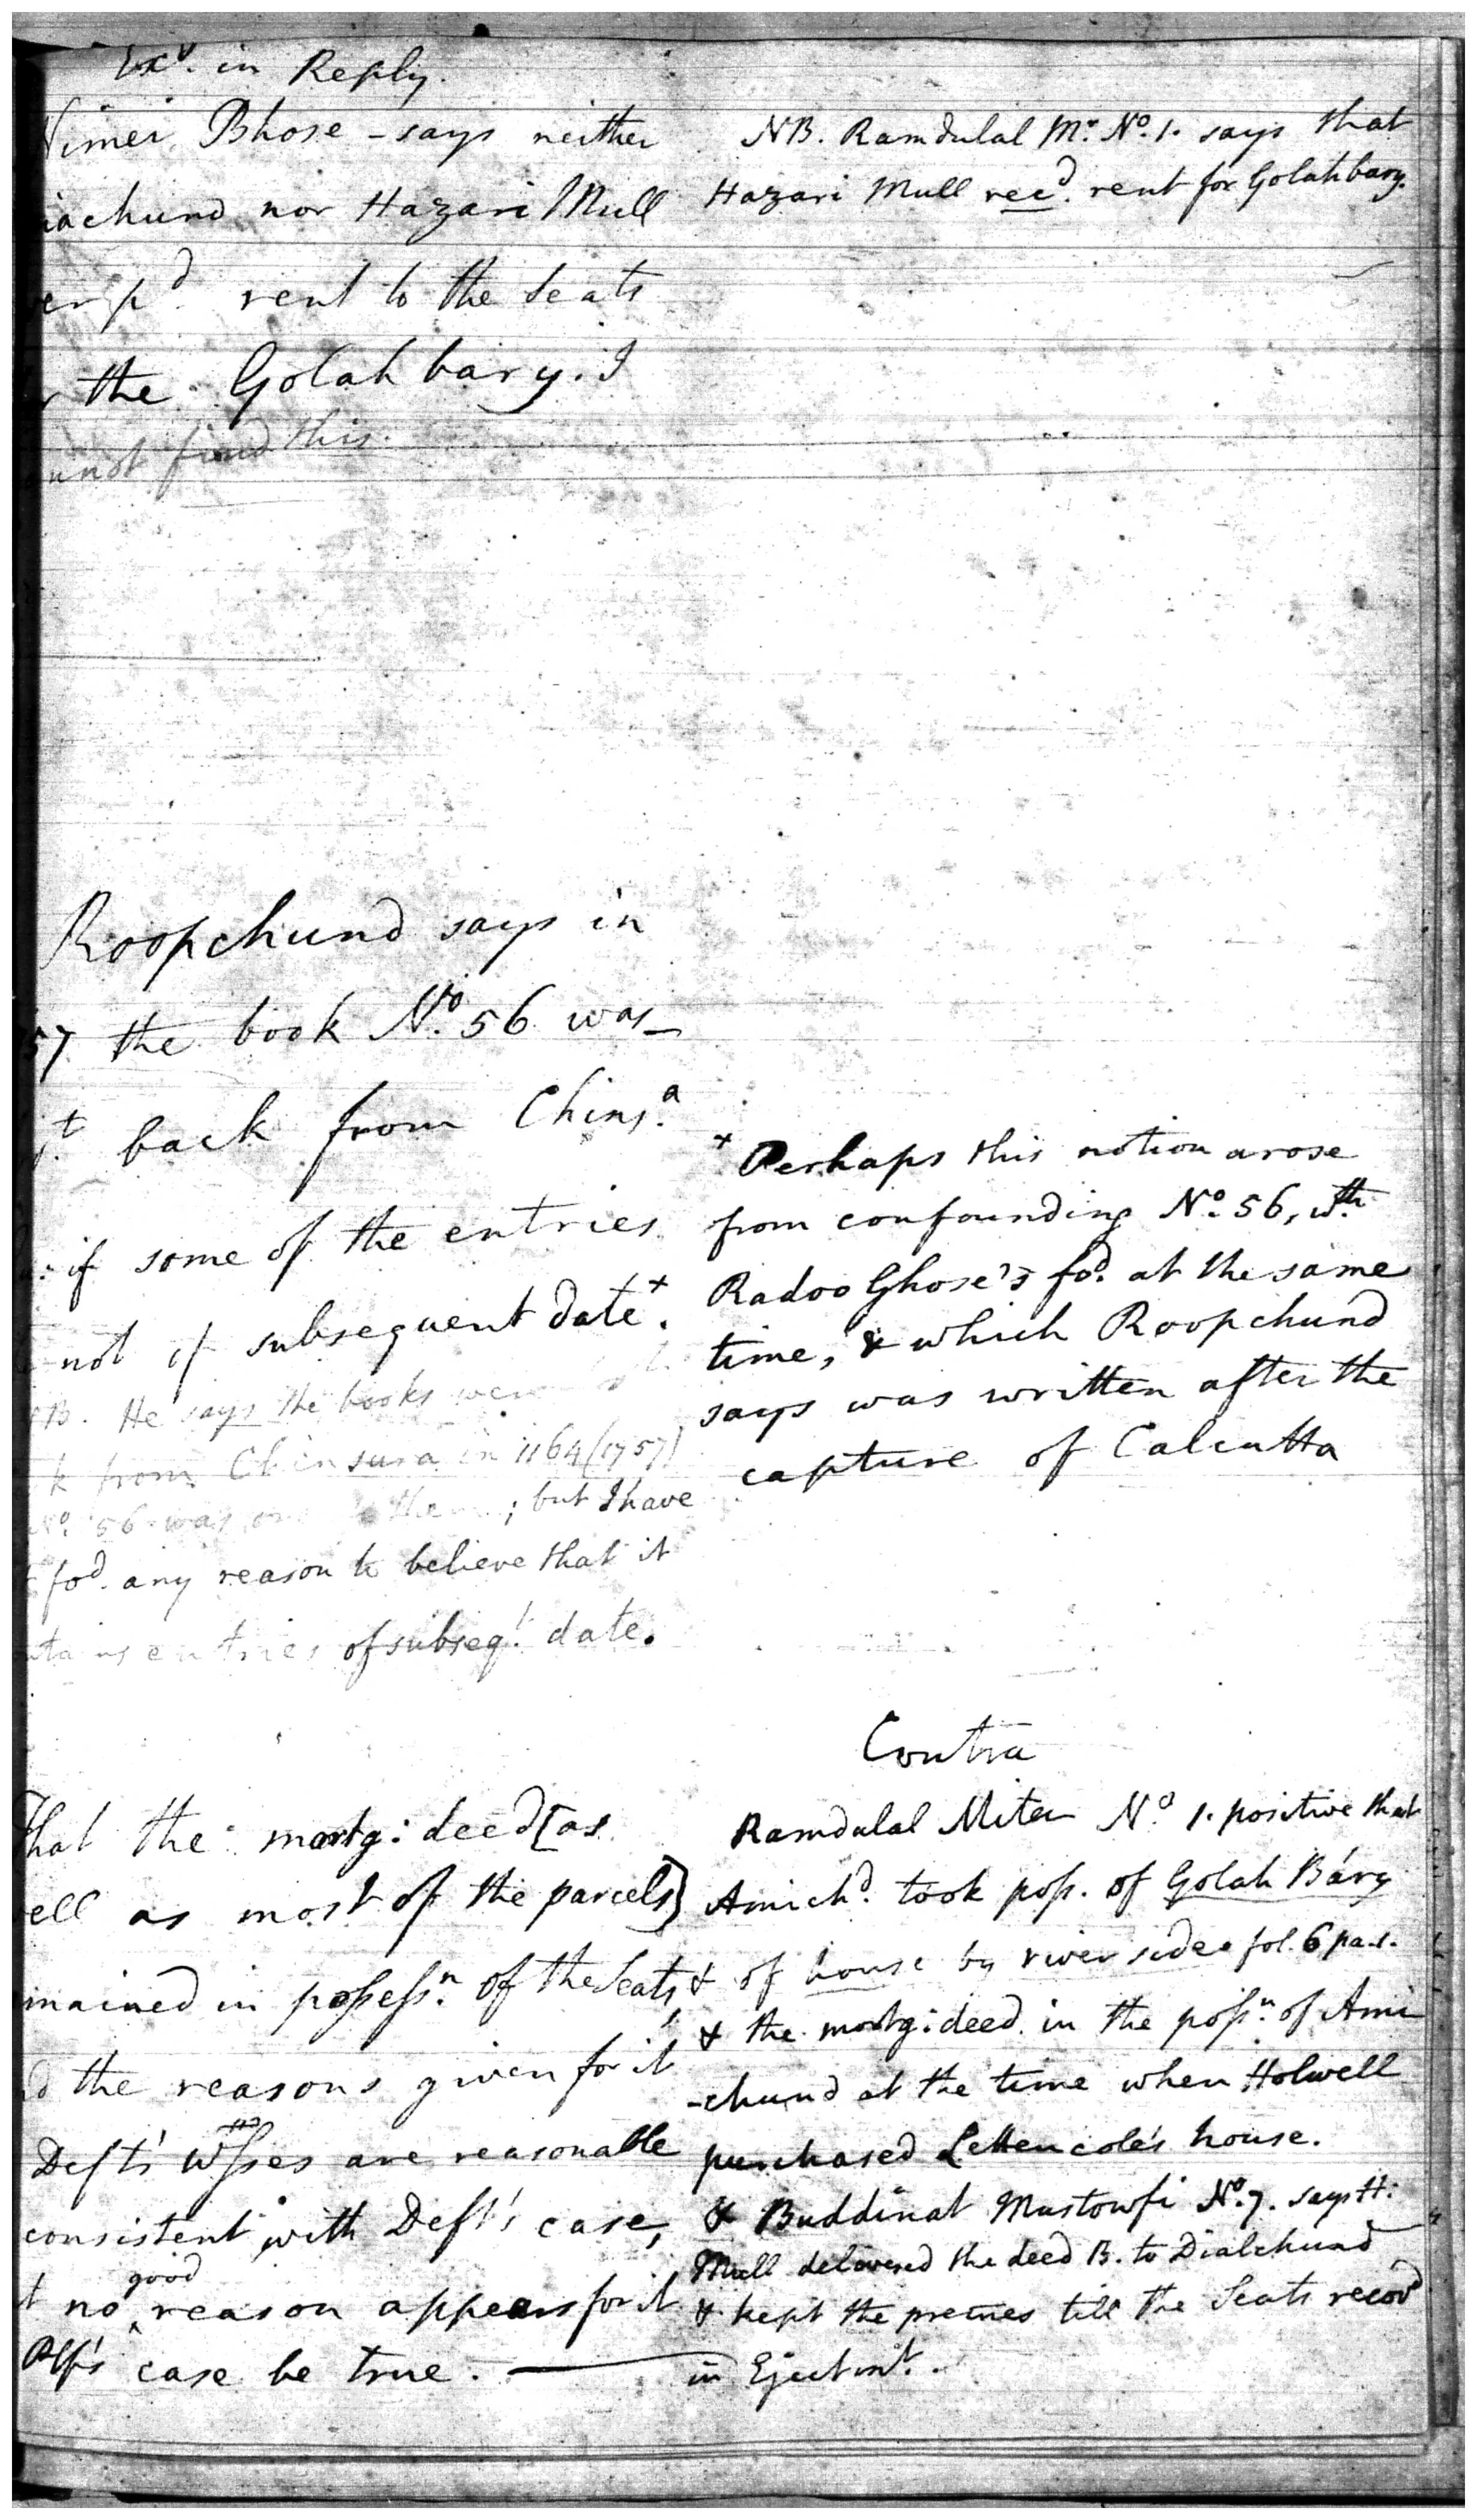 Exd. in Reply.
Nimei Bhose - says neither
iachund nor Hazari Mull
er pd. rent to the Seats
r the Golah bary. I
unot find this.
NB. Ramdulal Mr. No. 1. says that
Hazari Mull recd. rent for Golahbary.
Roopchund says in
57 the book No. 56 was
t. back from Chinsa.
: if some of the entries
not of subsequent date +.
B. He says the books were
k from Chinsura in 1164 (1757)
No. 56 was one the ; but I have
fod. any reason to believe that it
ntains entries of subseqt. date.
+ Perhaps this notion arose
from confounding No. 56, wth.
Radoo Ghose's fod. at the same
time, & which Roopchund
says was written after the
capture of Calcutta
That the mortg: deed [as
ell as most of the parcels]
mained in possessn. of the Seats,
d the reasons given for it
Deft's Wsses are reasonable
consistent with Deft's case,
t no good reason appears for it
Plf's case be true.
Contra
Ramdulal Miter No. 1. positive that
Amichd. took poss. of Golah Bary
& of house by river side fol. 6 pa. 1.
& the mortg: deed in the possn. of Ami
-chund at the time when Holwell
purchased Lettencole's house.
& Buddinat Mustowfi No. 7. says H:
Mull delivered the deed B. to Dialchund
& kept the premes till the Seats recovd
in Ejectmt.